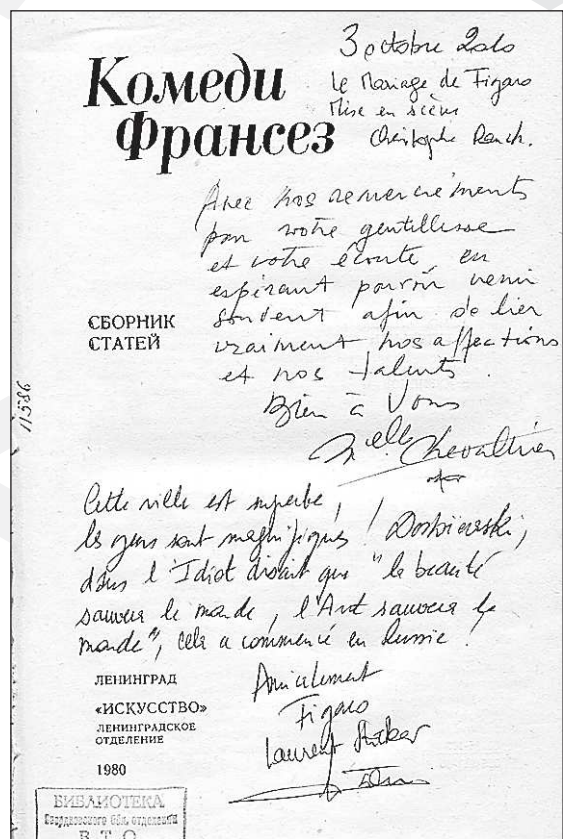 3 octobre 2010
Le Mariage de Figaro
Mise en scène
Christophe Rauck.
Комеди
Франсез
Avec nos remerciements
pour votre gentillesse
et votre écoute, en
espérant pouvoir venir
souvent afin de lier
vraiment nos affections
et nos talents.
Bien à Vous
Melle Chevallier
СБОРНИК
СТАТЕЙ
11586
Cette ville est superbe,
les gens sont magnifiques ! Dostoievski,
dans l'Idiot disait que "la beauté
sauvera le monde, l'Art sauvera le
monde", cela a commencé en Russie !
Amicalement
Figaro
Laurent Stocker
ЛЕНИНГРАД
«ИСКУССТВО»
ЛЕНИНГРАДСКОЕ
ОТДЕЛЕНИЕ
1980
БИБЛИОТЕКА
Свердловского обл. отделения
В Т О